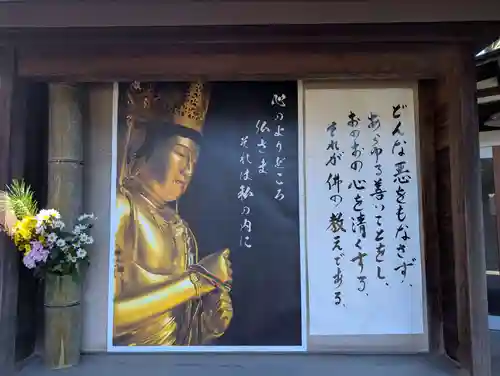 どんな悪をもなさず、
あらゆる善いことをし、
おのおの心を清くする、
それが佛の教えである。
心のよりどころ
仏さま
それは私の内に